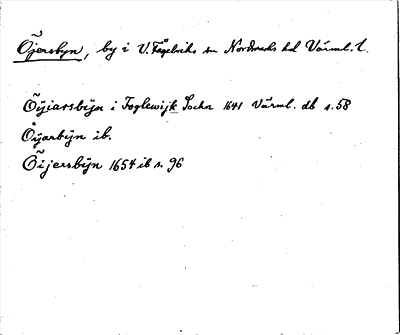 Öjersbyn, by i V. Fågelviks sn Nordmarks hd Värml. l.
Öijiarsbijn i Foglewijk Sochn 1641 Värml. db s. 58
Öijarbijn ib.
Öijersbijn 1654 ib s. 96